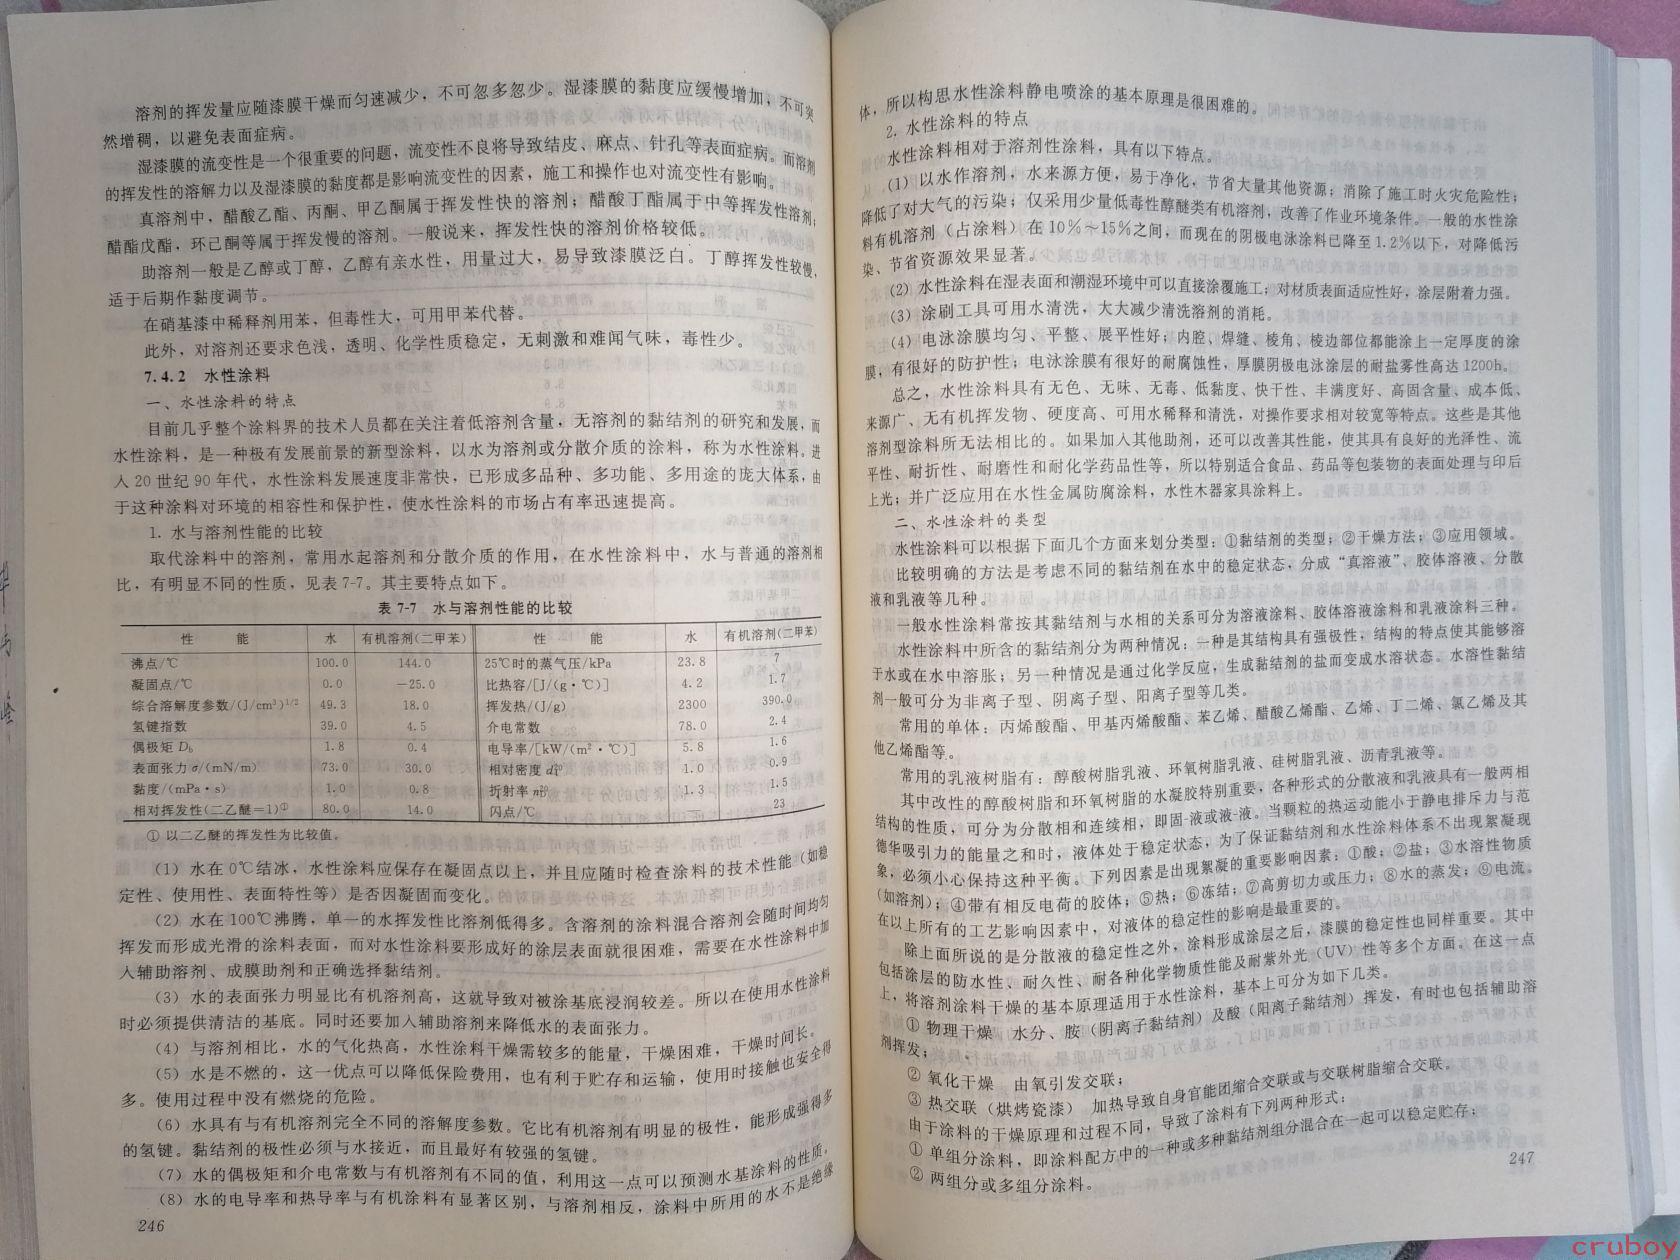 溶剂的挥发量应随漆膜干燥而匀速减少，不可忽多忽少。湿漆膜的黏度应缓慢增加，不可突
然增稠，以避免表面症病。
湿漆膜的流变性是一个很重要的问题，流变性不良将导致结皮、麻点、针孔等表面症病。而溶剂
的挥发性的溶解力以及湿漆膜的黏度都是影响流变性的因素，施工和操作也对流变性有影响。
真溶剂中，醋酸乙酯、丙酮、甲乙酮属于挥发性快的溶剂；醋酸丁酯属于中等挥发性溶剂；
醋酯戊酯，环己酮等属于挥发慢的溶剂。一般说来，挥发性快的溶剂价格较低。
助溶剂一般是乙醇或丁醇，乙醇有亲水性，用量过大，易导致漆膜泛白。丁醇挥发性较慢，
适于后期作黏度调节。
在硝基漆中稀释剂用苯，但毒性大，可用甲苯代替。
此外，对溶剂还要求色浅，透明、化学性质稳定，无刺激和难闻气味，毒性少。
7.4.2 水性涂料
一、水性涂料的特点
目前几乎整个涂料界的技术人员都在关注着低溶剂含量，无溶剂的黏结剂的研究和发展，而
水性涂料，是一种极有发展前景的新型涂料，以水为溶剂或分散介质的涂料，称为水性涂料。进
入 20 世纪 90 年代，水性涂料发展速度非常快，已形成多品种、多功能、多用途的庞大体系，由
于这种涂料对环境的相容性和保护性，使水性涂料的市场占有率迅速提高。
1. 水与溶剂性能的比较
取代涂料中的溶剂，常用水起溶剂和分散介质的作用，在水性涂料中，水与普通的溶剂相
比，有明显不同的性质，见表 7-7。其主要特点如下。
表 7-7 水与溶剂性能的比较
性 能 水 有机溶剂(二甲苯) 性 能 水 有机溶剂(二甲苯)
沸点/℃ 100.0 144.0 25℃时的蒸气压/kPa 23.8 7
凝固点/℃ 0.0 －25.0 比热容/[J/(g·℃)] 4.2 1.7
综合溶解度参数/(J/cm³)1/2 49.3 18.0 挥发热/(J/g) 2300 390.0
氢键指数 39.0 4.5 介电常数 78.0 2.4
偶极矩 Db 1.8 0.4 电导率/[kW/(m²·℃)] 5.8 1.6
表面张力 σ/(mN/m) 73.0 30.0 相对密度 1.0 0.9
黏度/(mPa·s) 1.0 0.8 折射率 1.3 1.5
相对挥发性(二乙醚=1)① 80.0 14.0 闪点/℃ 23
① 以二乙醚的挥发性为比较值。
（1）水在 0℃结冰，水性涂料应保存在凝固点以上，并且应随时检查涂料的技术性能（如稳
定性、使用性、表面特性等）是否因凝固而变化。
（2）水在 100℃沸腾，单一的水挥发性比溶剂低得多。含溶剂的涂料混合溶剂会随时间均匀
挥发而形成光滑的涂料表面，而对水性涂料要形成好的涂层表面就很困难，需要在水性涂料中加
入辅助溶剂、成膜助剂和正确选择黏结剂。
（3）水的表面张力明显比有机溶剂高，这就导致对被涂基底浸润较差。所以在使用水性涂料
时必须提供清洁的基底。同时还要加入辅助溶剂来降低水的表面张力。
（4）与溶剂相比，水的气化热高，水性涂料干燥需较多的能量，干燥困难，干燥时间长。
（5）水是不燃的，这一优点可以降低保险费用，也有利于贮存和运输，使用时接触也安全得
多。使用过程中没有燃烧的危险。
（6）水具有与有机溶剂完全不同的溶解度参数。它比有机溶剂有明显的极性，能形成强得多
的氢键。黏结剂的极性必须与水接近，而且最好有较强的氢键。
（7）水的偶极矩和介电常数与有机溶剂有不同的值，利用这一点可以预测水基涂料的性质。
（8）水的电导率和热导率与有机涂料有显著区别，与溶剂相反，涂料中所用的水不是绝缘
246
体，所以构思水性涂料静电喷涂的基本原理是很困难的。
2. 水性涂料的特点
水性涂料相对于溶剂性涂料，具有以下特点。
（1）以水作溶剂，水来源方便，易于净化，节省大量其他资源；消除了施工时火灾危险性；
降低了对大气的污染；仅采用少量低毒性醇醚类有机溶剂，改善了作业环境条件。一般的水性涂
料有机溶剂（占涂料）在 10%～15%之间，而现在的阴极电泳涂料已降至1.2%以下，对降低污
染、节省资源效果显著。
（2）水性涂料在湿表面和潮湿环境中可以直接涂覆施工；对材质表面适应性好，涂层附着力强。
（3）涂刷工具可用水清洗，大大减少清洗溶剂的消耗。
（4）电泳涂膜均匀、平整、展平性好；内腔、焊缝、棱角、棱边部位都能涂上一定厚度的涂
膜，有很好的防护性；电泳涂膜有很好的耐腐蚀性，厚膜阴极电泳涂层的耐盐雾性高达 1200h。
总之，水性涂料具有无色、无味、无毒、低黏度、快干性、丰满度好、高固含量、成本低、
来源广、无有机挥发物、硬度高、可用水稀释和清洗，对操作要求相对较宽等特点。这些是其他
溶剂型涂料所无法相比的。如果加入其他助剂，还可以改善其性能，使其具有良好的光泽性、流
平性、耐折性、耐磨性和耐化学药品性等，所以特别适合食品、药品等包装物的表面处理与印后
上光；并广泛应用在水性金属防腐涂料，水性木器家具涂料上。
二、水性涂料的类型
水性涂料可以根据下面几个方面来划分类型：①黏结剂的类型；②干燥方法；③应用领域。
比较明确的方法是考虑不同的黏结剂在水中的稳定状态，分成“真溶液”、胶体溶液、分散
液和乳液等几种。
一般水性涂料常按其黏结剂与水相的关系可分为溶液涂料、胶体溶液涂料和乳液涂料三种。
水性涂料中所含的黏结剂分为两种情况：一种是其结构具有强极性，结构的特点使其能够溶
于水或在水中溶胀；另一种情况是通过化学反应，生成黏结剂的盐而变成水溶状态。水溶性黏结
剂一般可分为非离子型、阴离子型、阳离子型等几类。
常用的单体：丙烯酸酯、甲基丙烯酸酯、苯乙烯、醋酸乙烯酯、乙烯、丁二烯、氯乙烯及其
他乙烯酯等。
常用的乳液树脂有：醇酸树脂乳液、环氧树脂乳液、硅树脂乳液、沥青乳液等。
其中改性的醇酸树脂和环氧树脂的水凝胶特别重要，各种形式的分散液和乳液具有一般两相
结构的性质，可分为分散相和连续相，即固-液或液-液。当颗粒的热运动能小于静电排斥力与范
德华吸引力的能量之和时，液体处于稳定状态，为了保证黏结剂和水性涂料体系不出现絮凝现
象，必须小心保持这种平衡。下列因素是出现絮凝的重要影响因素：①酸；②盐；③水溶性物质
（如溶剂）；④带有相反电荷的胶体；⑤热；⑥冻结；⑦高剪切力或压力；⑧水的蒸发；⑨电流。
在以上所有的工艺影响因素中，对液体的稳定性的影响是最重要的。
除上面所说的是分散液的稳定性之外，涂料形成涂层之后，漆膜的稳定性也同样重要。其中
包括涂层的防水性、耐久性、耐各种化学物质性能及耐紫外光（UV）性等多个方面。在这一点
上，将溶剂涂料干燥的基本原理适用于水性涂料，基本上可分为如下几类。
① 物理干燥 水分、胺（阴离子黏结剂）及酸（阳离子黏结剂）挥发，有时也包括辅助溶
剂挥发；
② 氧化干燥 由氧引发交联；
③ 热交联（烘烤瓷漆） 加热导致自身官能团缩合交联或与交联树脂缩合交联。
由于涂料的干燥原理和过程不同，导致了涂料有下列两种形式：
① 单组分涂料，即涂料配方中的一种或多种黏结剂组分混合在一起可以稳定贮存；
② 两组分或多组分涂料。
247
cruboy